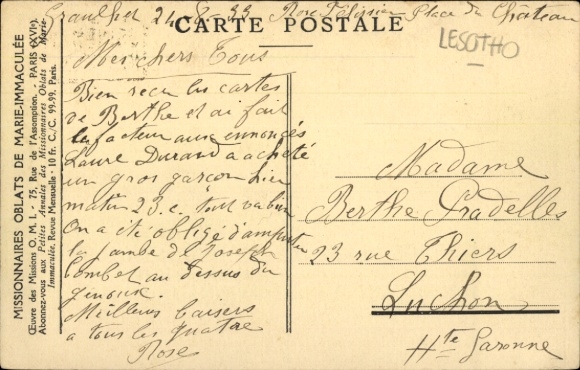 Graulhet 24-8-33 Rose Pélissier Place du Château
CARTE POSTALE
LESOTHO
MISSIONNAIRES OBLATS DE MARIE-IMMACULÉE
Œuvre des Missions O. M. I. - 75, Rue de l'Assomption. - PARIS (XVIe)
Abonnez-vous aux Petites Annales des Missionnaires Oblats de Marie-
Immaculée. Revue Mensuelle : 10 fr. C./C. 99-99. Paris.
Mes chers Tous
Bien reçu les cartes
de Berthe et ai fait
le facteur aux
Laure Durand a acheté
un gros garçon hier
matin 23.c. tout va bien
On a été obligé d'amputer
la jambe de Joseph
Combet au dessus du
genoux.
Meilleurs baisers
a tous les quatre
Rose
Madame
Berthe Pradelles
23 rue Thiers
Luchon
Hte Garonne